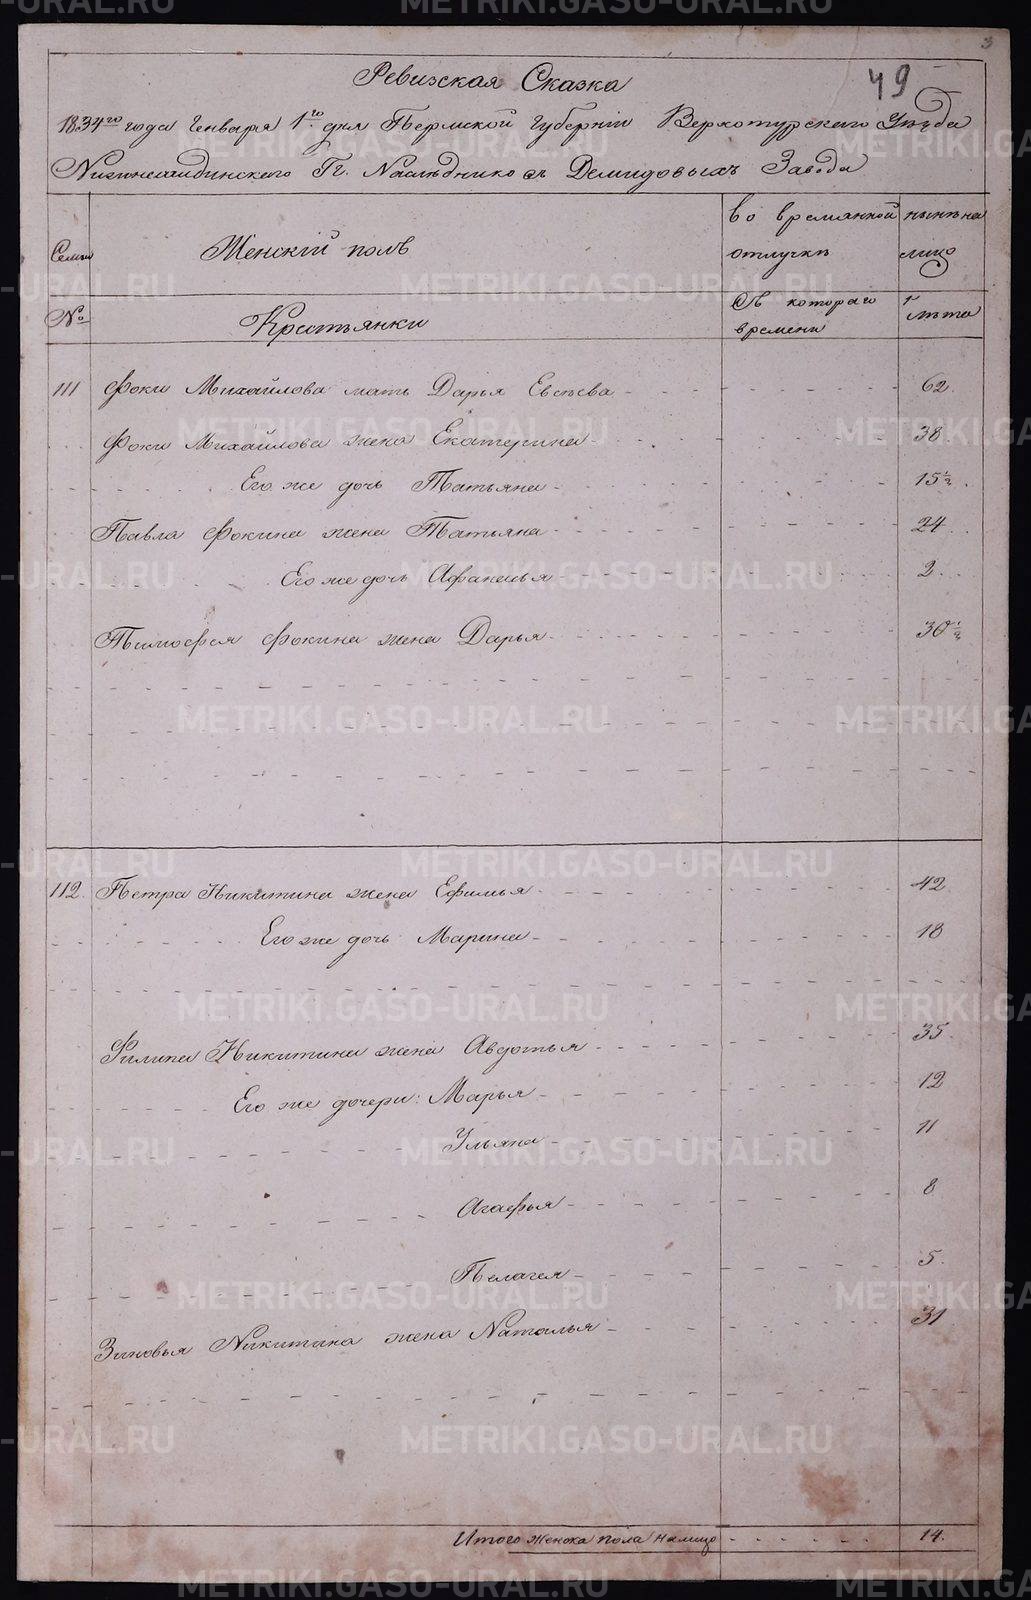 3
49
Ревизская Сказка
1834го года Генваря 1го дня Пермской Губернiи Верхотурского Уѣзда
Нижнесалдинского Гг. Наслѣдниковъ Демидовыхъ Завода
Семьи
Женскiй полъ
во времянной отлучкѣ
нынѣ на лицо
№
Крестьянки
Съ котораго времени
лѣта
111 Фоки Михайлова мать Дарья Евсѣева 62.
Фоки Михайлова жена Екатерина 38.
Его же дочь Татьяна 15½.
Павла Фокина жена Татьяна 24.
Его же дочь Афанасья 2.
Тимофея Фокина жена Дарья 30½
112. Петра Никитина жена Ефимья 42
Его же дочь Марина 18
Филипа Никитина жена Авдотья 35.
Его же дочери: Марья 12
Ульяна 11
Агафья 8
Пелагея 5.
Зиновья Никитина жена Наталья 31
Итого женска пола налицо 14.
METRIKI.GASO-URAL.RU